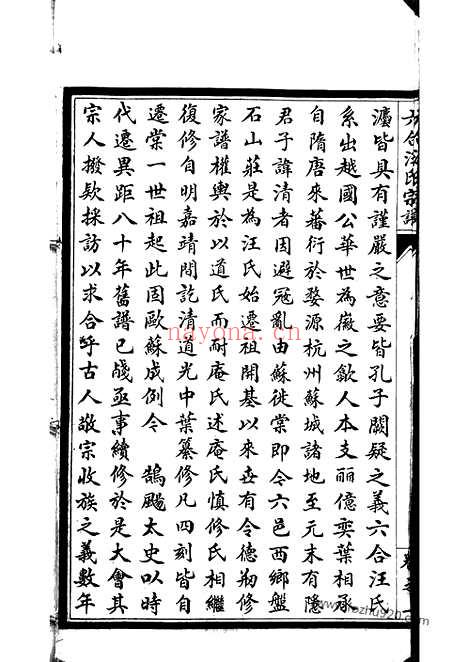 六合汪氏宗譜
瀍皆具有謹嚴之意要皆孔子闕疑之義六合汪氏
系出越國公華世為徽之歙人本支麗億奕葉相承
自隋唐來蕃衍於婺源杭州蘇城諸地至元末有隱
君子諱清者因避寇亂由蘇徙棠即令六邑西鄉盤
石山莊是為汪氏始遷祖開基以來世有令德刱修
家譜權輿於以道氏而耐庵氏述庵氏慎修氏相繼
復修自明嘉靖間訖清道光中葉纂修凡四刻皆自
遷棠一世祖起此固歐蘇成例今 鵠颺太史以時
代遷異距八十年舊譜已殘亟事續修於是大會其
宗人撥欵採訪以求合乎古人敬宗收族之義數年
nayona.cn
www.kozhu920.com